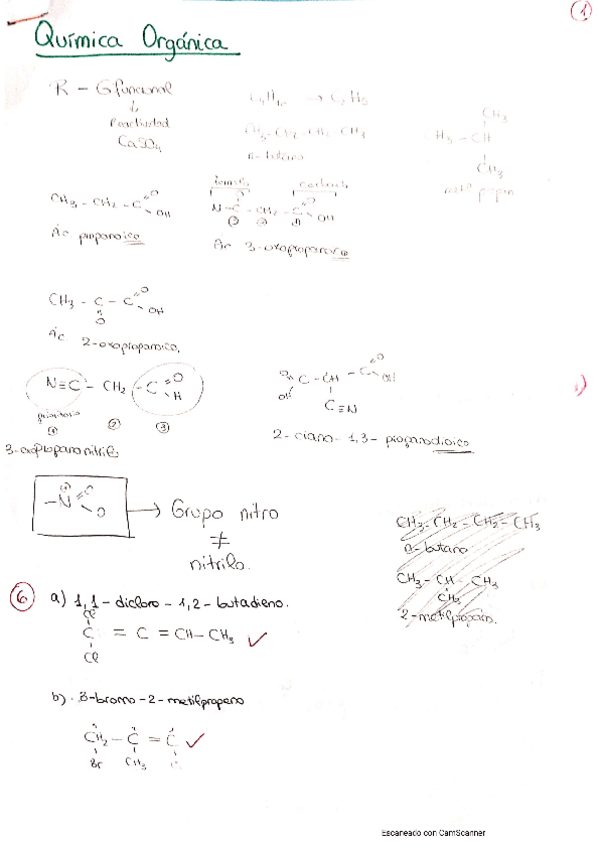 1
Química Orgánica
R - G funcional
↓
Reactividad
CaSO4
C4H10 → C2H5
CH3-CH2-CH2-CH3
n-butano
CH3
H3-CH
CH3
metil propan
CH3 - CH2 - C O OH
Ác propanoico
N-C - CH2 - C O OH
③ ② ①
Ác 3-oxopropanoico
CH3 - C - C O OH
O
Ác 2-oxopropanoico.
N≡C - CH2 - C O H
① ② ③
3-oxopropanonitrilo
C - CH - C O OH
OH
C≡N
2-ciano-1,3-propanodioico
-N O O → Grupo nitro
≠
nitrilo.
CH3-CH2-CH2-CH3
n-butano
CH3-CH-CH3
CH3
2-metilpropano.
⑥ a) 1,1-dicloro-1,2-butadieno.
Cl
C = C = CH-CH3 ✓
Cl
b). 3-bromo-2-metilpropeno
CH2 - C = C ✓
Br CH3
Escaneado con CamScanner